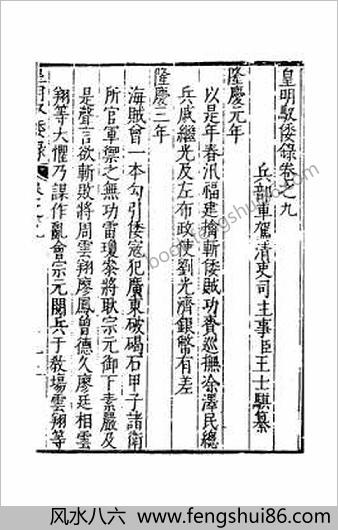 皇明馭倭錄卷之九
兵部車駕清吏司主事臣王士騏纂
隆慶元年
以是年春汛福建擒斬倭賊功賞巡撫涂澤民總
兵戚繼光及左布政使劉光濟銀幣有差
隆慶三年
海賊曾一本勾引倭寇犯廣東破碣石甲子諸衛
所官軍禦之無功雷瓊叅將耿宗元御下素嚴及
是聲言欲斬敗將周雲翔廖鳳曾德久廖廷相雲
翔等大懼乃謀作亂會宗元閱兵于敎場雲翔等
book.fengshui86.com
风水八六-www.fengshui86.com